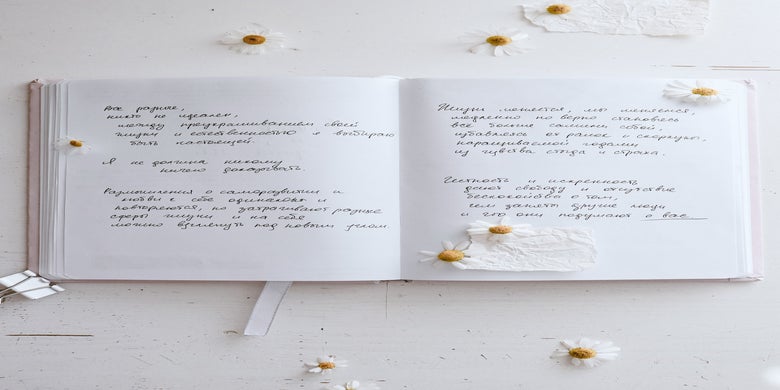 Все разные,
никто не идеален,
между приукрашиванием своей
жизни и естественностью я выбираю
быть настоящей.
Я не должна никому
ничего доказывать.
Размышления о саморазвитии и
любви к себе одинаковы и
повторяются, но затрагивают разные
сферы жизни и на себя
можно взглянуть под новым углом.
Жизнь меняется, мы меняемся,
медленно но верно становясь
все более самими собой,
избавляясь от рамок и скорлупы,
наращиваемой годами
из чувства стыда и страха.
Честность и искренность
дают свободу и отсутствие
беспокойства о том,
чем заняты другие люди
и что они подумают о вас